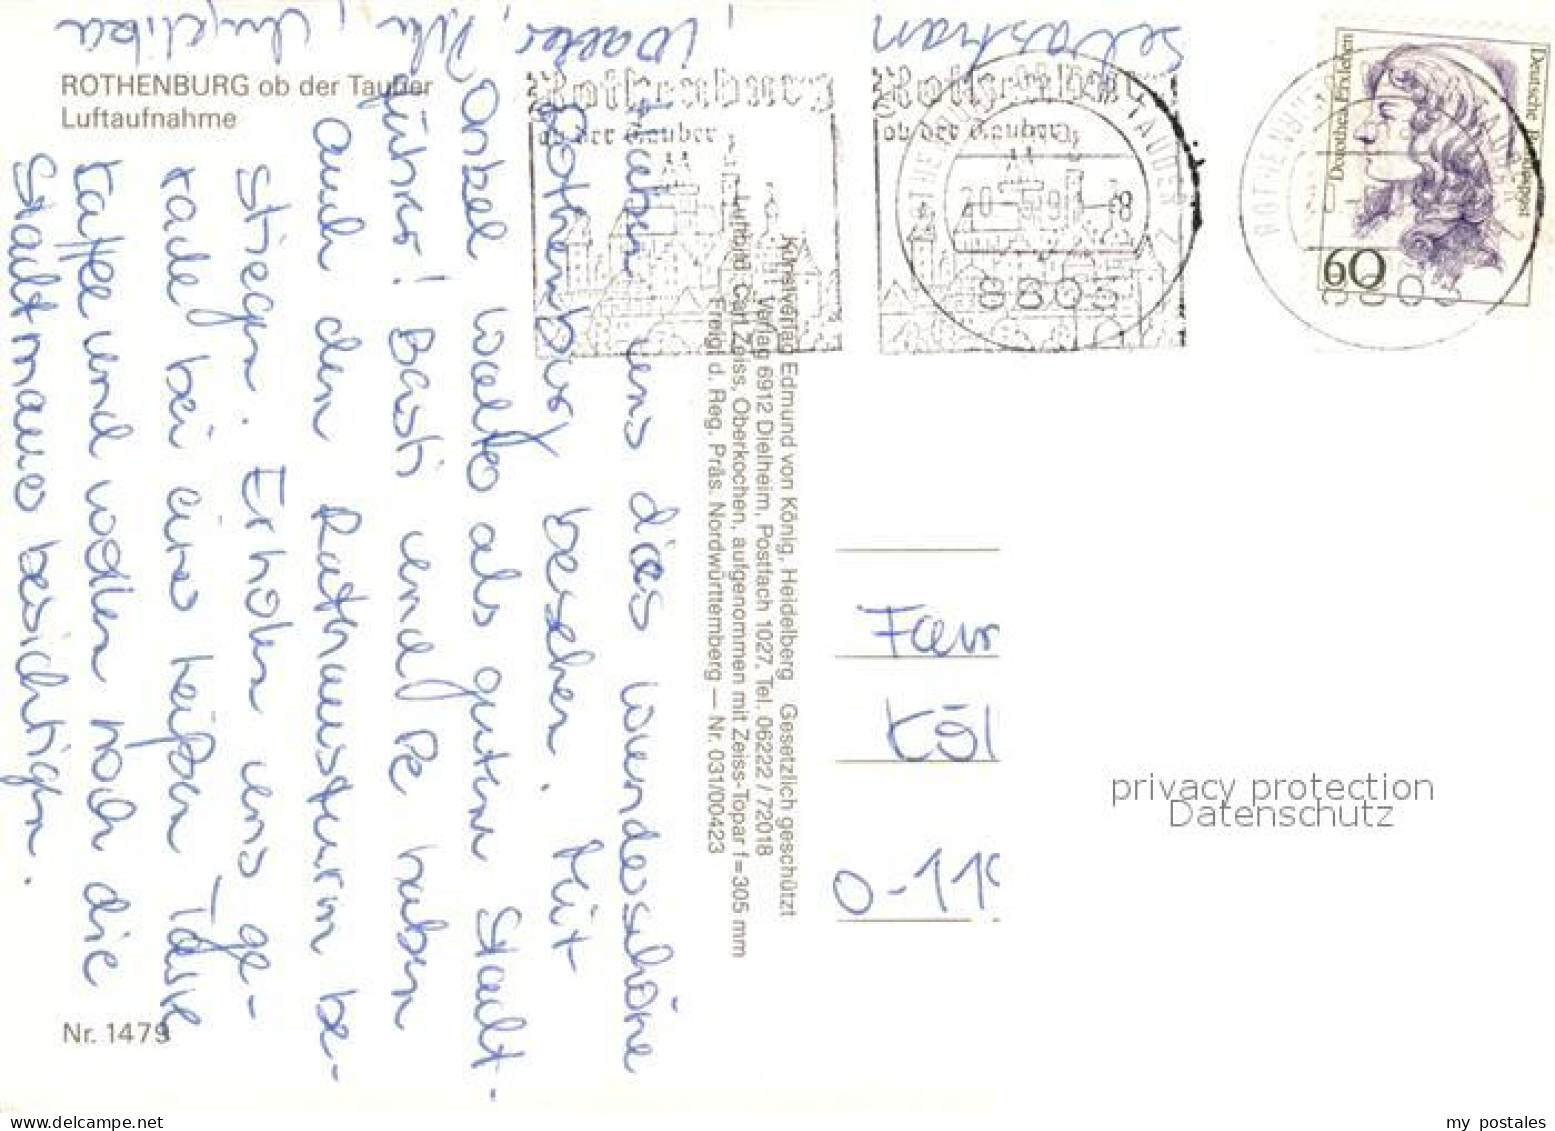 ROTHENBURG ob der Tauber
Luftaufnahme
haben uns dies wunderschöne
Rothenburg besehen. Mit
Onkel Walter als guten Stadt-
führer! Basti und Pe haben
auch den Rathausturm be-
stiegen. Erholen uns ge-
rade bei einer heißen Tasse
Kaffee und wollen noch die
Stadtmauer besichtigen.
Angelika, Walter, Sebastian
Nr. 1479
Kunstverlag Edmund von König, Heidelberg Gesetzlich geschützt
Verlag 6912 Dielheim, Postfach 1027, Tel. 06222 / 72018
Luftbild Carl Zeiss, Oberkochen, aufgenommen mit Zeiss-Topar f=305 mm
Freigf. d. Reg. Präs. Nordwürttemberg — Nr. 031/00423
Rothenburg
ob der Tauber
Rothenburg
ob der Tauber
8803
Deutsche Bundespost
Dorothea Erxleben
60
Fam
Köl
0-119
privacy protection
Datenschutz
my postales